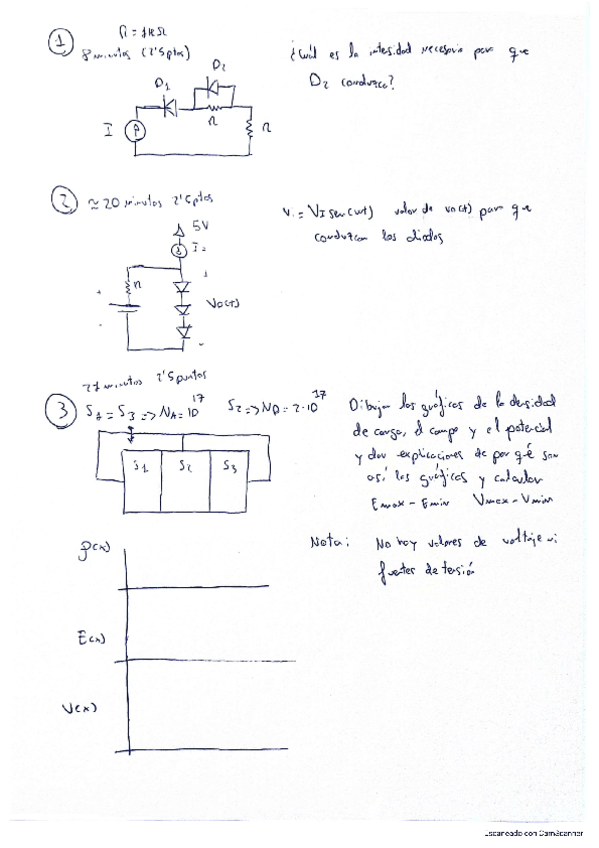 ① R = 1kΩ
8 minutos (2'5 ptos)
¿Cuál es la intesidad necesaria para que
D2 conduzca?
D1
D2
I
R
R
② ≈ 20 minutos 2'5 ptos
Vi = VI sen(wt) valor de vo(t) para que
conduzcan los diodos
5V
I
R
+
+
Vo(t)
-
-
27 minutos 2'5 puntos
③ SA = S3 => NA = 10^17 S2 => ND = 2·10^17
Dibujar los gráficos de la densidad
de carga, el campo y el potencial
y dar explicaciones de por qué son
así los gráficos y calcular
Emax - Emin Vmax - Vmin
S1 S2 S3
Nota: No hay valores de voltaje ni
fuentes de tensión
ρ(x)
E(x)
V(x)
Escaneado con CamScanner